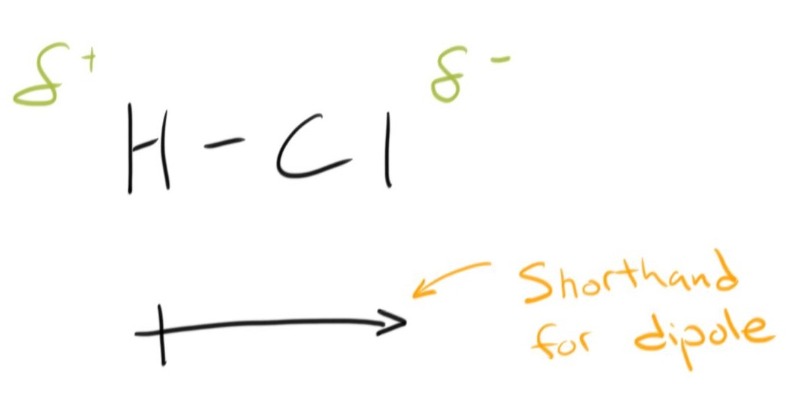 δ+ H-Cl δ-
Shorthand
for dipole